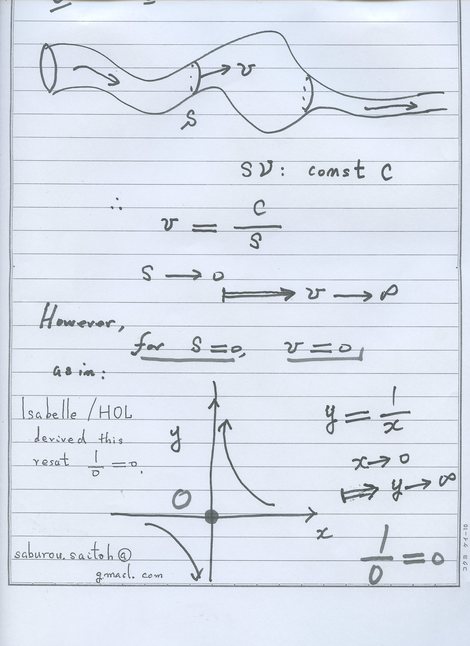 v
S
SV: const C
∴
v = C/S
S → 0
⟹ v → ∞
However,
for S=0, v=0,
as in:
Isabelle/HOL
derived this
resat 1/0 = 0.
y
0
x
y = 1/x
x→0
⟹ y→∞
1/0 = 0
saburou.saitoh@
gmail.com